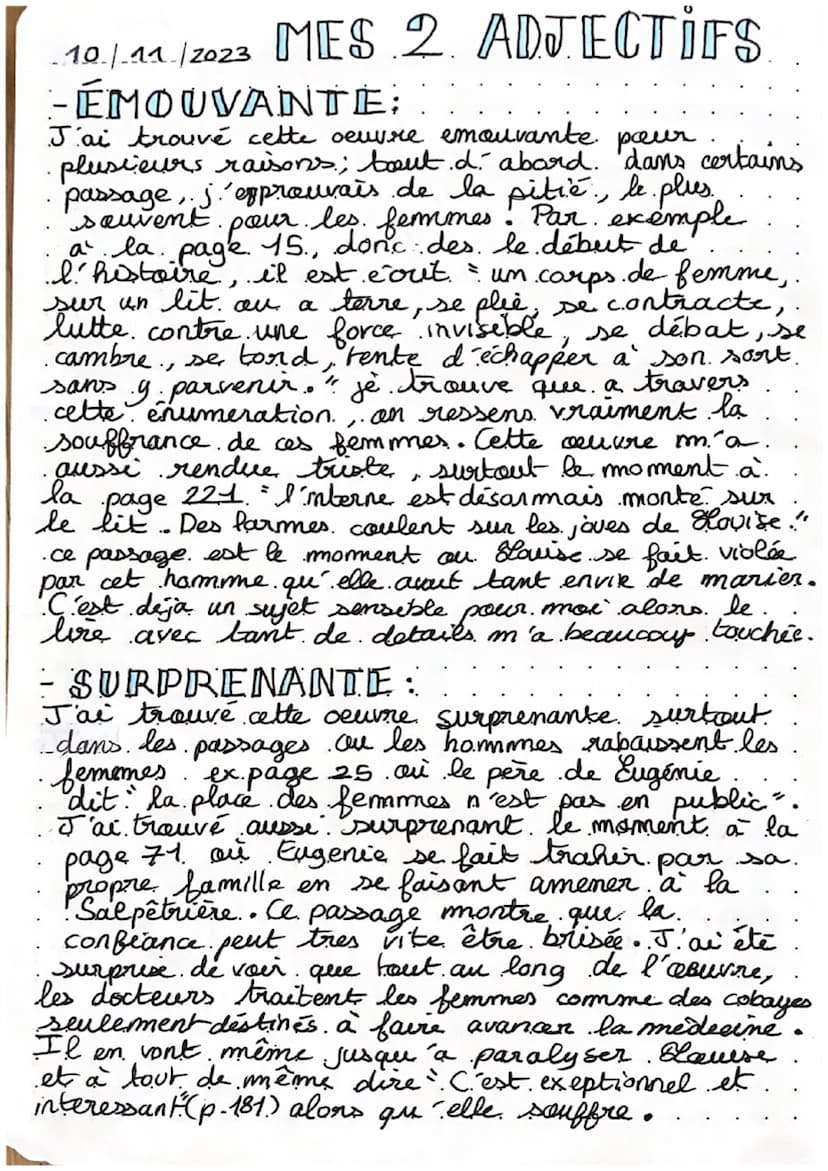 10/11/2023 MES 2 ADJECTIFS
- ÉMOUVANTE:
J'ai trouvé cette oeuvre emouvante pour
plusieurs raisons; tout d'abord dans certains
passage, j'epprouvais de la pitié, le plus
souvent pour les femmes. Par exemple
à la page 15, donc des le début de
l'histoire, il est écrit : " un corps de femme,
sur un lit ou a terre, se plie, se contracte,
lutte contre une force invisible, se débat, se
cambre, se tord, tente d'échapper à son sort
sans y parvenir." je trouve que a travers
cette énumeration, on ressens vraiment la
souffrance de ces femmes. Cette oeuvre m'a
aussi rendue triste, surtout le moment à
la page 221 : "l'interne est désarmais monté sur
le lit. Des larmes coulent sur les joues de Louise."
ce passage est le moment ou Louise se fait violée
par cet homme qu'elle avait tant envie de marier.
C'est déjà un sujet sensible pour moi alors le
lire avec tant de details m'a beaucoup touchée.
- SURPRENANTE:
J'ai trouvé cette oeuvre surprenante surtout
dans les passages ou les hommes rabaissent les
femmes. ex page 25 où le père de Eugénie
dit: "la place des femmes n'est pas en public".
J'ai trouvé aussi surprenant le moment à la
page 71 où Eugenie se fait trahir par sa
propre famille en se faisant amener à la
Salpêtrière. Ce passage montre que la
confiance peut tres vite être brisée. J'ai été
surprise de voir que tout au long de l'oeuvre,
les docteurs traitent les femmes comme des cobayes
seulement déstinés à faire avancer la médecine.
Il en vont même jusqu'a paralyser Louise
et à tout de même dire "C'est exeptionnel et
interessant"(p.181) alors qu'elle souffre.